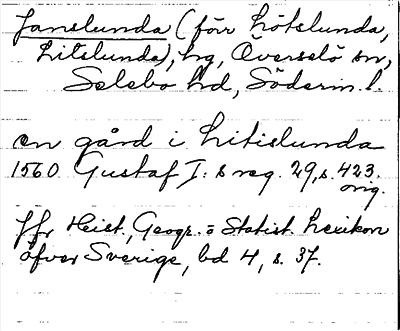 Janslunda (förr Hötslunda,
Litslunda), hg, Överselö sn,
Selebo hd, Söderm. l.
en gård i hitislunda
1560 Gustaf I:s reg. 29, s. 423.
orig.
Jfr Hist., Geogr. o Statist. Lexikon
öfver Sverige, bd 4, s. 37.